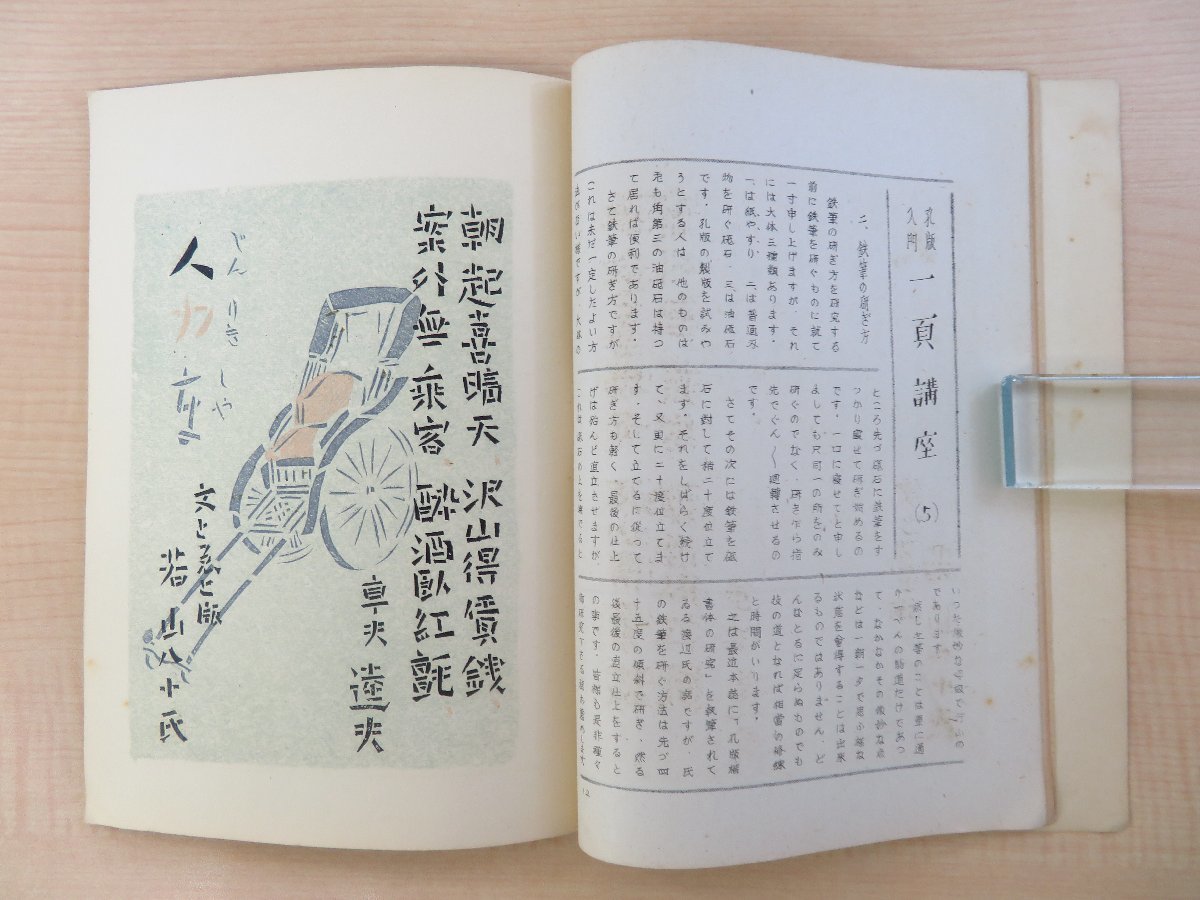 孔版入門 一頁講座 (5)
二、鉄筆の研ぎ方
鉄筆の研ぎ方を研究する
前に鉄筆を研ぐものに就て
一寸申し上げますが、それ
には大体三種類あります。
一、は紙やすり、二は普通刃
物を研ぐ砥石、三は油砥石
です。孔版の製版を試みや
うとする人は、他のものは
兎も角第三の油砥石は持つ
て居れば便利であります。
さて鉄筆の研ぎ方ですが
これは未だ一定したよい方
法がない様ですが、大体の
ところ先づ砥石に鉄筆をす
つかり寝せて研ぎ始めるの
です。一口に寝せてと申し
ましても只同一の所をのみ
研ぐのでなく、研き乍ら指
先でぐん〱廻轉させるの
です。
さてその次には鉄筆を砥
石に対して約二十度位立て
ます。それをしばらく続け
て、又更に二十度位立てま
す。そして立てるに従って
研ぎ方も軽く、最後の仕上
げは殆んど直立させますが
これは砥石の上を撫でると
いつた微妙な
であります。
然し上等のことは
り一ぺんの だけであつ
て、なかなかその微妙な点
などは一朝一夕で思ふ様な
状態を會得することは出来
るものではありません。ど
んなとるに足らぬものでも
技の道となれば相当の修練
と時間がいります。
之は最近本誌に「孔版楷
書体の研究」を執筆されて
ゐる渡辺氏の説ですが、氏
の鉄筆を研ぐ方法は先づ四
十五度の傾斜で研ぎ、然る
後最後の直立仕上をすると
の事です。皆様も是非種々
12
朝起喜晴天 沢山得價銭
案外無乗客 酔酒臥紅氈
車夫 逵夫
じんりきしや
人力車
文とゑと版
若山八十氏